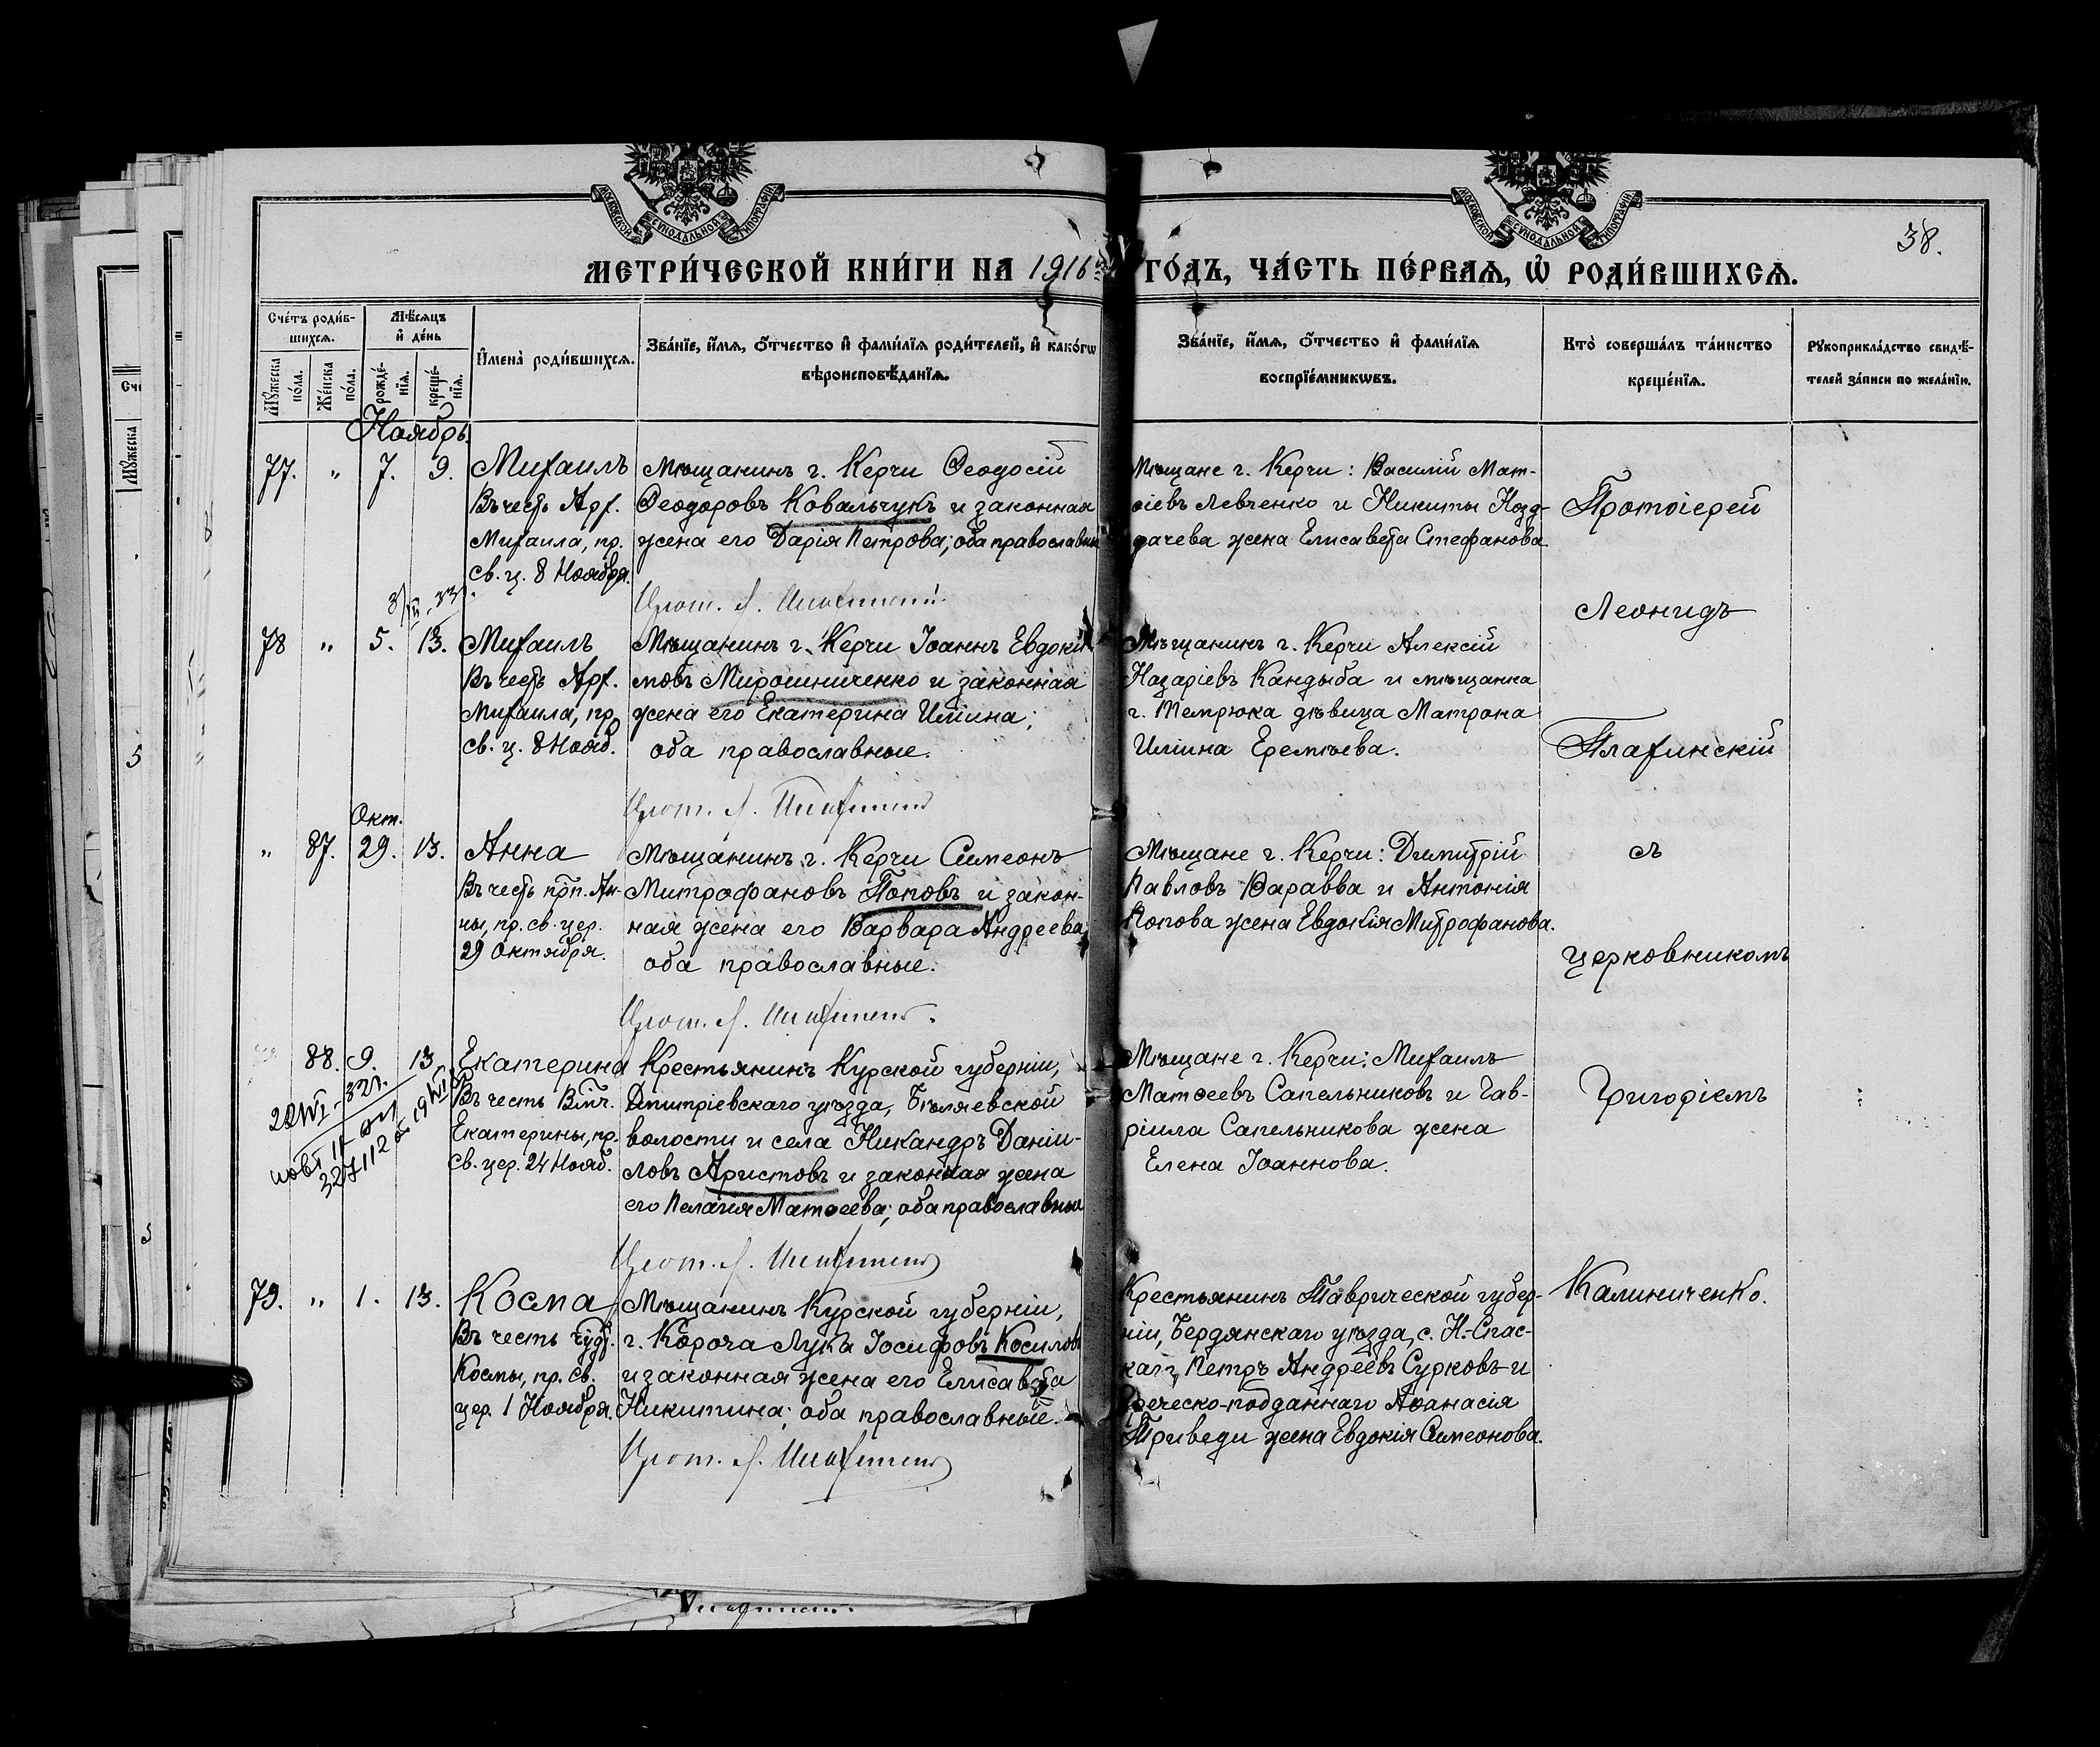 МОСКОВСКОЙ СѴНОДАЛЬНОЙ ТИПОГРАФІИ
МОСКОВСКОЙ СѴНОДАЛЬНОЙ ТИПОГРАФІИ
38.
МЕТРИ́ЧЕСКОЙ КНИ́ГИ НА 1916 ГО́ДЪ, ЧА́СТЬ ПЕ́РВАѦ, Ѡ РОДИ́ВШИХСѦ.
Сче́тъ роди́в-
шихсѧ.
Мѣ́сѧцъ
и҆ де́нь
Мꙋ́жеска по́ла.
Же́нска по́ла.
рожде́-нїѧ.
креще́-нїѧ.
И҆мена̀ роди́вшихсѧ.
Зва́нїе, и҆́мѧ, ѻ҆́тчество и҆ фами́лїѧ роди́телей, и҆ како́гѡ
вѣроисповѣ́данїѧ.
Зва́нїе, и҆́мѧ, ѻ҆́тчество и҆ фами́лїѧ
воспрїе́мникѡвъ.
Кто̀ соверша́лъ та́инство
креще́нїѧ.
Рꙋкоприкла́дство свидѣ́-
телей за́писи по жела́нїю.
Ноябрь.
77. " 7. 9. Михаилъ
Въ честь Арх.
Михаила, пр.
св. ц. 8 Ноября.
Мѣщанинъ г. Керчи Ѳеодосій
Ѳеодоровъ Ковальчукъ и законная
жена его Дарія Петрова; оба православные
Мѣщане г. Керчи: Василій Мат-
ѳіевъ Левченко и Никиты Нозд-
рачева жена Елисавета Стефанова
Протоіерей
Леонидъ
Плахинскій
съ
церковникомъ
Григоріемъ
Калиниченко.
78 " 5. 13. Михаилъ
Въ честь Арх.
Михаила, пр.
св. ц. 8 Нояб.
Мѣщанинъ г. Керчи Іоаннъ Евдоки-
мовъ Мирошниченко и законная
жена его Екатерина Иліина;
оба православные.
Мѣщанинъ г. Керчи Алексій
Назаріевъ Кандыба и мѣщанка
г. Темрюка дѣвица Матрона
Иліина Еремѣева.
Окт.
" 87. 29. 13. Анна
Въ честь прп. Ан-
ны, пр. св. цер.
29 Октября.
Мѣщанинъ г. Керчи Симеонъ
Митрофановъ Поповъ и закон-
ная жена его Варвара Андреева
оба православные.
Мѣщане г. Керчи: Димитрій
Павловъ Варавва и Антонія
Попова жена Евдокія Митрофанова.
88. 9. 13 Екатерина
Въ честь Влмч.
Екатерины, пр.
св. цер. 24 Нояб.
Крестьянинъ Курской губерніи,
Дмитріевскаго уѣзда, Бѣляевской
волости и села Никандръ Даніи-
ловъ Аристовъ и законная жена
его Пелагія Матѳеева; оба православные
Мѣщане г. Керчи: Михаилъ
Матѳеевъ Сапельниковъ и Гав-
ріила Сапельникова жена
Елена Іоаннова.
79. " 1. 13. Косма
Въ честь чуд.
Космы, пр. св.
цер. 1 Ноября.
Мѣщанинъ Курской губерніи,
г. Короча Лука Іосифовъ Косиловъ
и законная жена его Елисавета
Никитина; оба православные.
Крестьянинъ Таврической губер-
ніи, Бердянскаго уѣзда, с. Н.-Спас-
каго, Петръ Андреевъ Сурковъ и
Греческо-подданнаго Аѳанасія
Триведи жена Евдокія Симеонова.